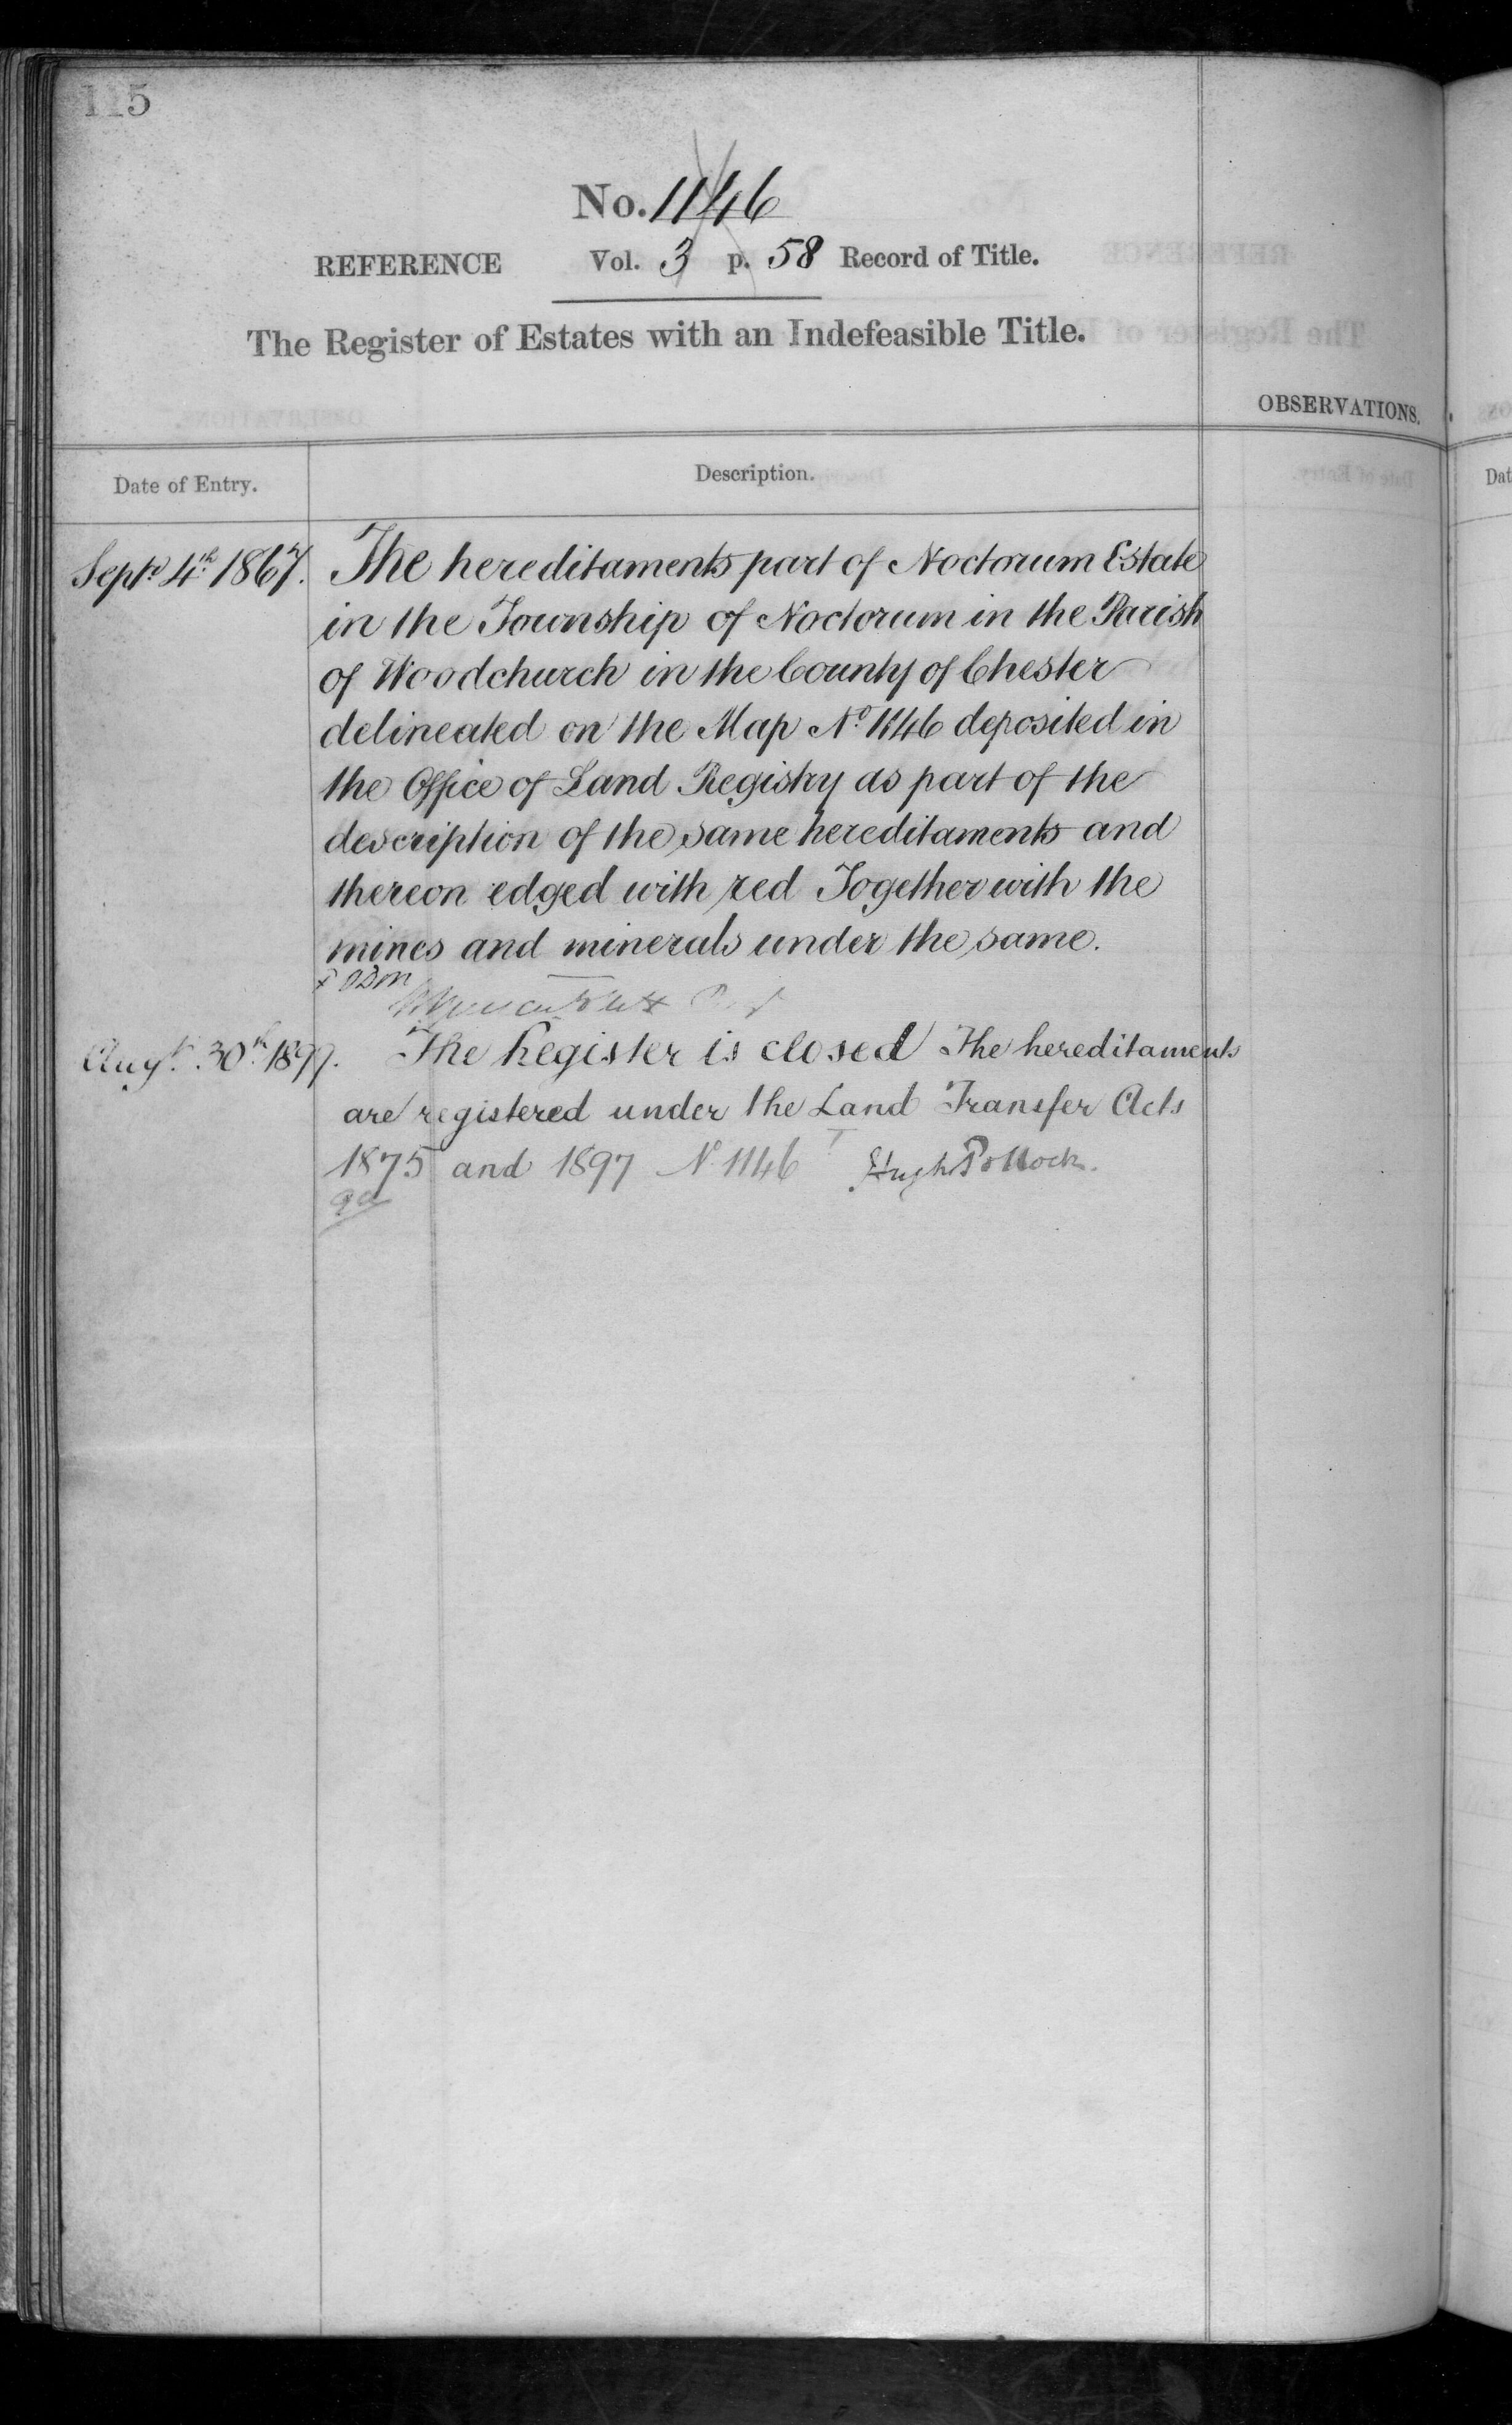 115
No. 1146
REFERENCE Vol. 3 p. 58 Record of Title.
The Register of Estates with an Indefeasible Title.
OBSERVATIONS.
Date of Entry.
Description.
Septr 4th 1867. The hereditaments part of Noctorum Estate
in the Township of Noctorum in the Parish
of Woodchurch in the County of Chester
delineated on the Map No. 1146 deposited in
the Office of Land Registry as part of the
description of the same hereditaments and
thereon edged with red Together with the
mines and minerals under the same.
Augt. 30th 1899. The Register is closed The hereditaments
are registered under the Land Transfer Acts
1875 and 1897 No 1146 Hugh Pollock.
Dat